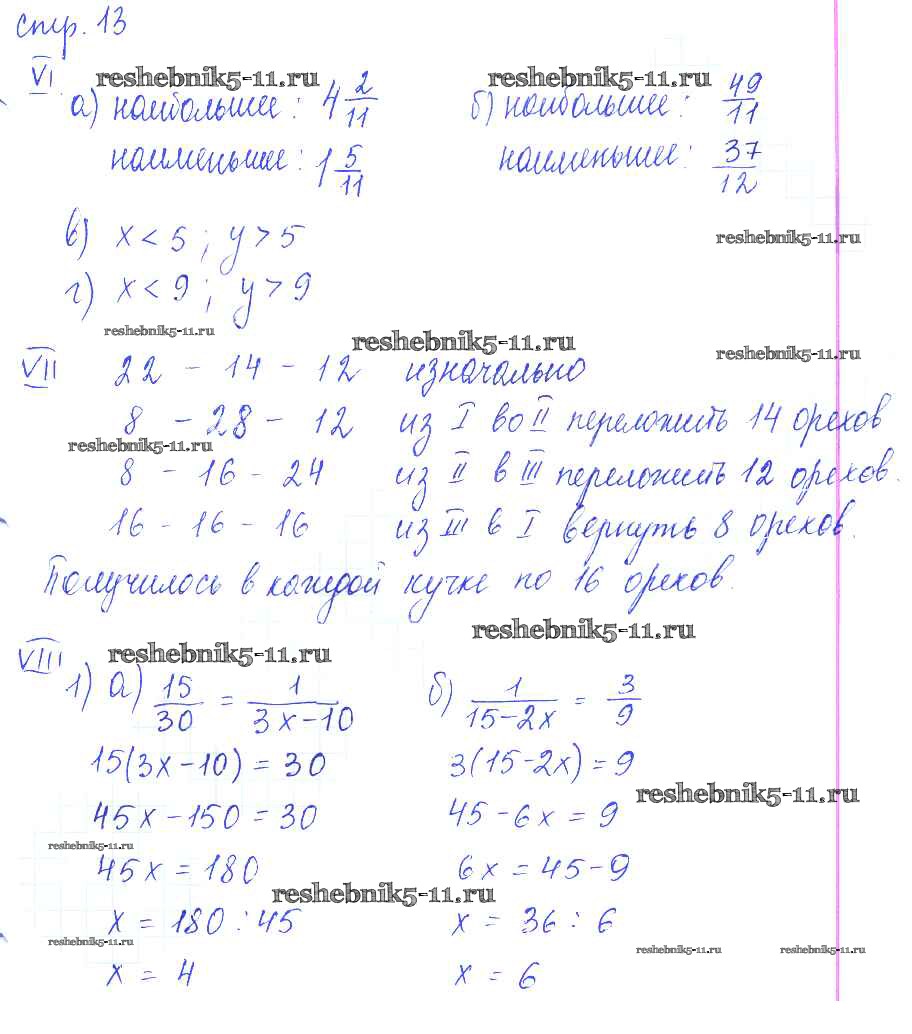 стр. 13
VI
reshebnik5-11.ru reshebnik5-11.ru
а) наибольшее: 4 2/11 б) наибольшее: 49/11
наименьшее: 1 5/11 наименьшее: 37/12
в) x < 5; y > 5
reshebnik5-11.ru
г) x < 9; y > 9
reshebnik5-11.ru
reshebnik5-11.ru
reshebnik5-11.ru
VII 22 - 14 - 12 изначально
8 - 28 - 12 из I во II переложить 14 орехов
reshebnik5-11.ru
8 - 16 - 24 из II в III переложить 12 орехов.
16 - 16 - 16 из III в I вернуть 8 орехов.
Получилось в каждой кучке по 16 орехов.
reshebnik5-11.ru
VIII reshebnik5-11.ru
1) а) 15/30 = 1/(3x-10) б) 1/(15-2x) = 3/9
15(3x-10) = 30 3(15-2x) = 9
reshebnik5-11.ru
45x - 150 = 30 45 - 6x = 9
reshebnik5-11.ru
45x = 180 6x = 45 - 9
reshebnik5-11.ru
x = 180 : 45 x = 36 : 6
reshebnik5-11.ru reshebnik5-11.ru reshebnik5-11.ru
x = 4 x = 6